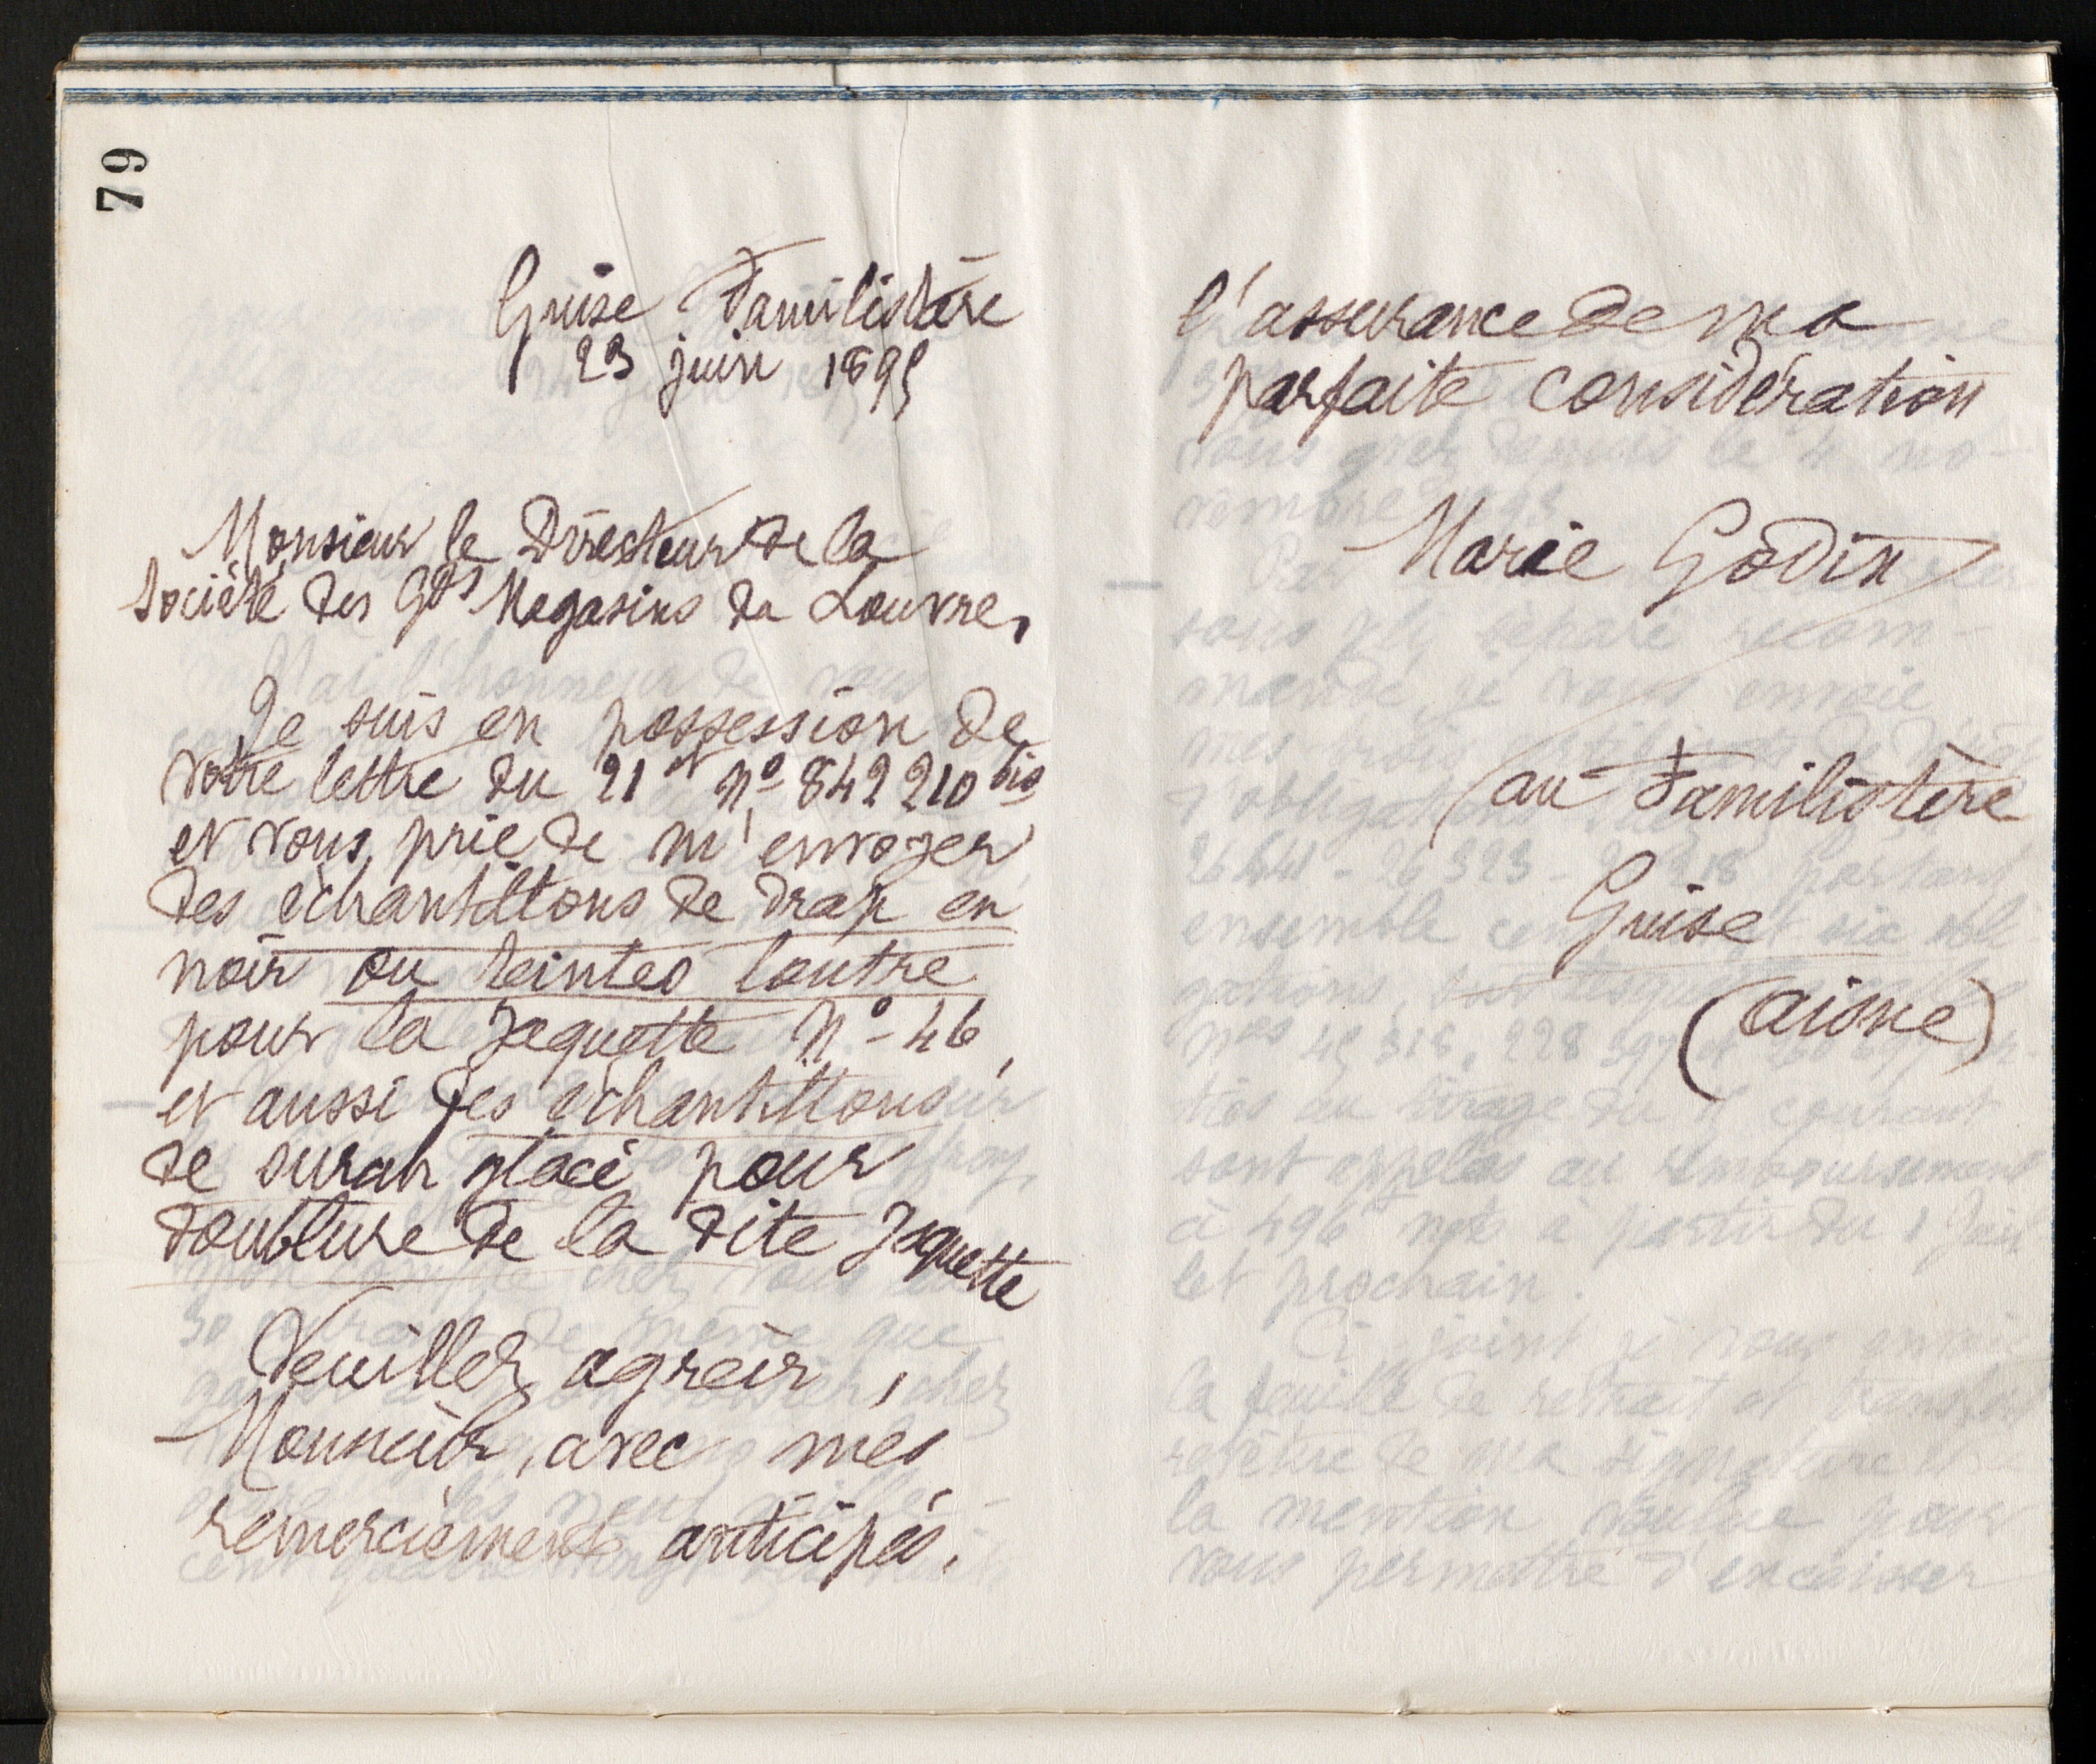 79
Guise Familistère
23 juin 1895
Monsieur le Directeur de la
Société des Gds Magasins du Louvre,
Je suis en possession de
votre lettre du 21 ct nº 842210 bis
et vous prie de m'envoyer
des échantillons de drap en
noir ou teintes loutre
pour la Jaquette Nº 46,
et aussi des échantillons
de surah glacé pour
doublure de la dite Jaquette
Veuillez agréer,
Monsieur, avec mes
remerciements anticipés,
l'assurance de ma
parfaite considération
Marie Godin
au Familistère
Guise
(aisne)